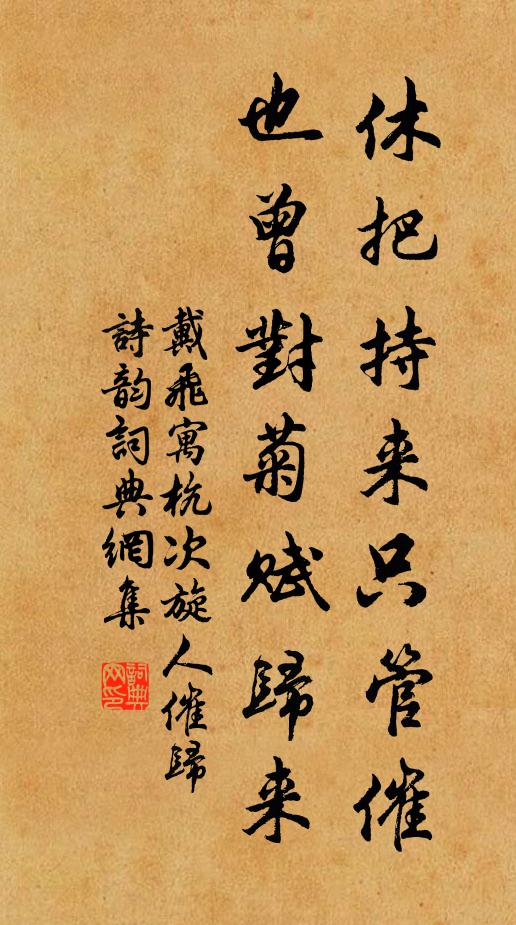 休把持来只管催
也曾對菊賦歸来
戴飛寓杭次旋人催歸
詩韵詞典網集
詞典
网印